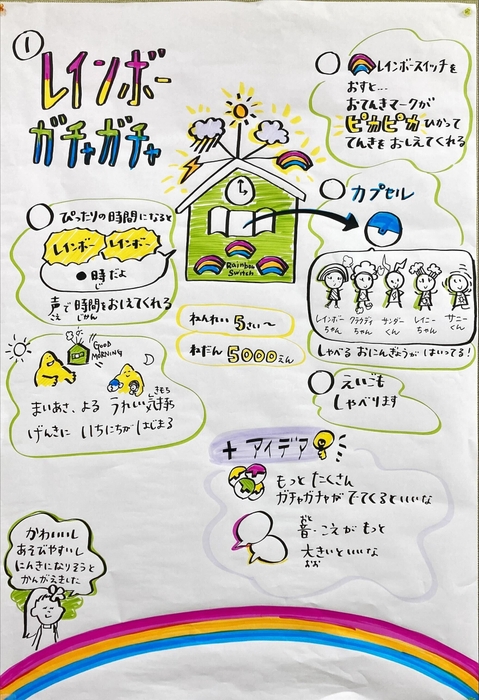 ①
レインボー
ガチャガチャ
ぴったりの時間になると
レインボー レインボー
●時だよ
じ
声で時間をおしえてくれる
こえ じかん
GOOD
MORNING
まいあさ、よる うれしい気持ち
きもち
げんきに いちにちが はじまる
Rainbow
Switch
ねんれい 5さい〜
ねだん 5000えん
レインボースイッチを
おすと...
おてんきマークが
ピカピカ ひかって
てんきを おしえてくれる
カプセル
レインボーちゃん
クラウディちゃん
サンダーくん
レイニーちゃん
サニーくん
しゃべる おにんぎょうが はいってる!
えいごも
しゃべります
+ アイデア
もっと たくさん
ガチャガチャが でてくるといいな
おと
音・こえが もっと
大きいといいな
おお
かわいいし
あそびやすいし
にんきになりそうと
かんがえました